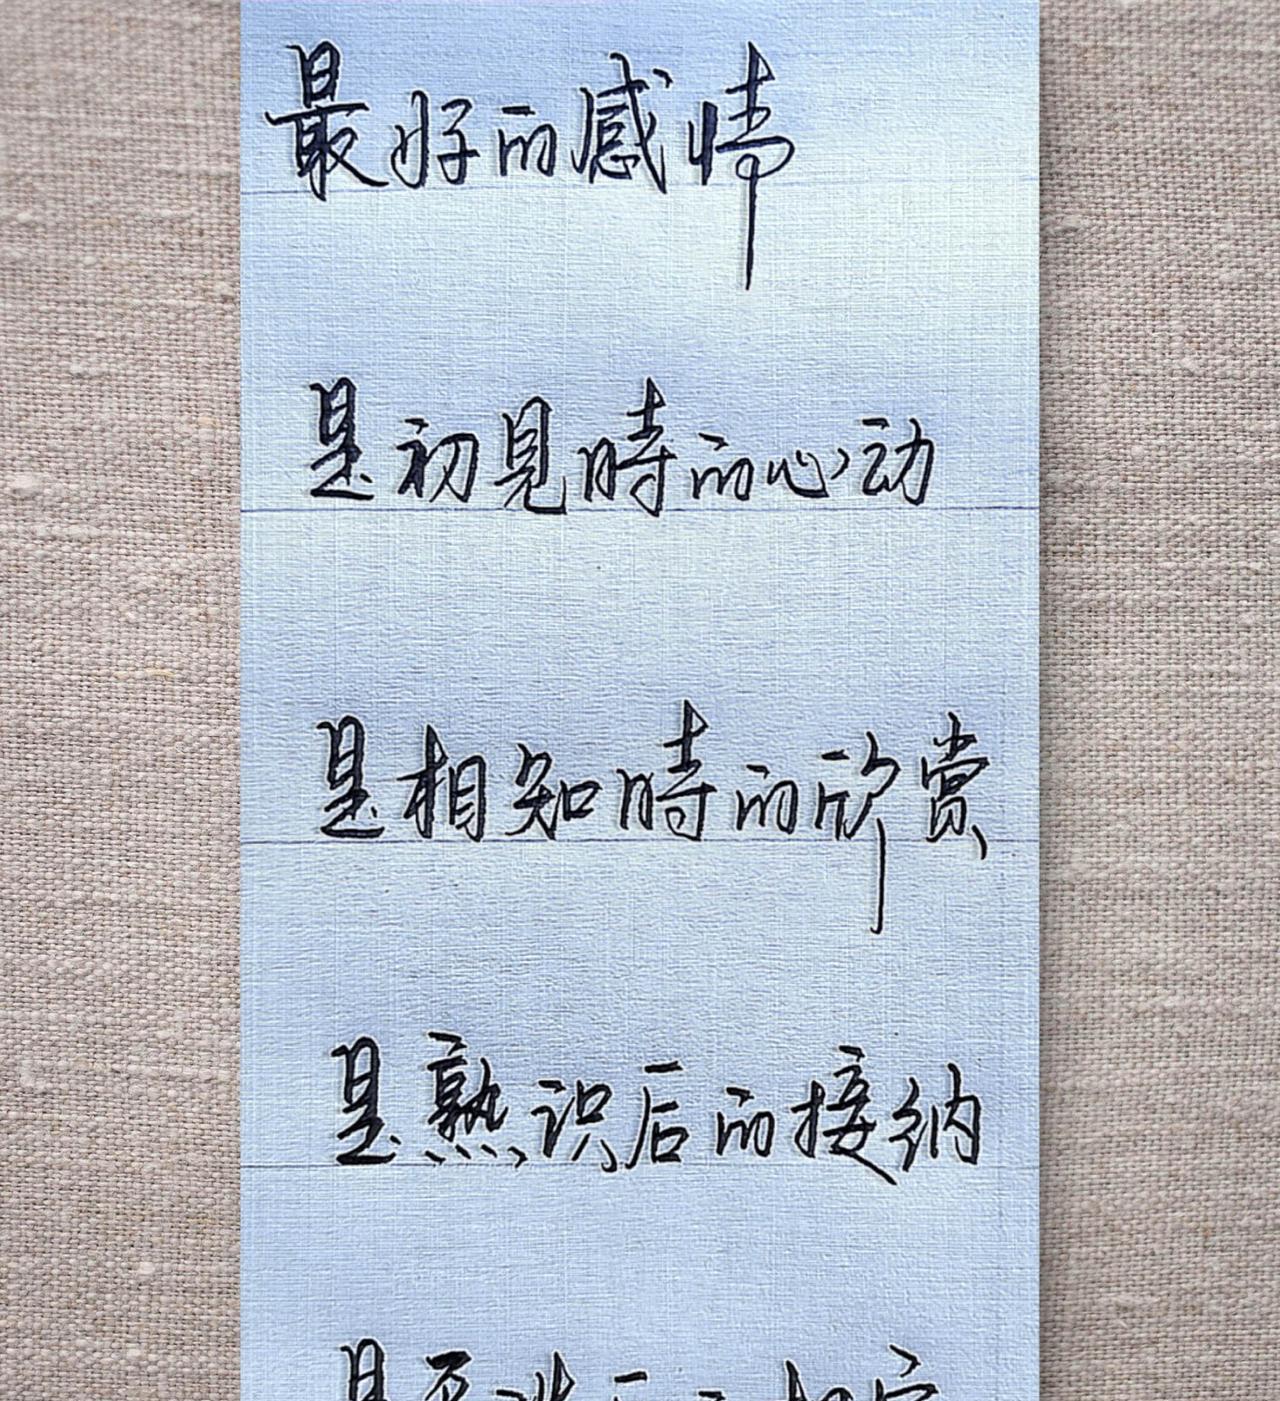 最好的感情
是初見時的心动
是相知時的欣赏
是熟识后的接纳
是